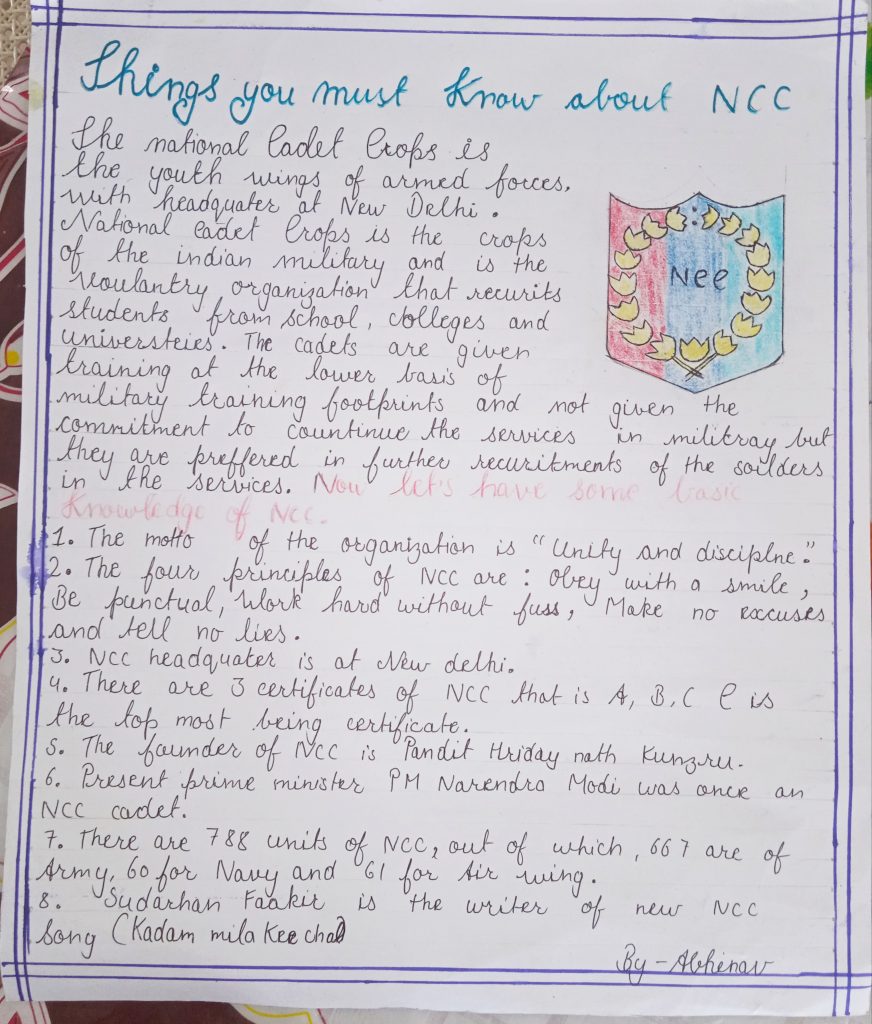 Things you must Know about NCC
The national Cadet Crops is
the youth wings of armed forces,
with headquater at New Delhi.
National cadet Crops is the crops
of the indian military and is the
voulantry organization that recurits
students from school, colleges and
universteies. The cadets are given
training at the lower basis of
military training footprints and not given the
commitment to countinue the services in militray but
they are preffered in further recuritments of the soilders
in the services. Now let's have some basic
Knowledge of NCC.
1. The motto of the organization is "Unity and disciplne."
2. The four principles of NCC are: Obey with a smile,
Be punctual, Work hard without fuss, Make no excuses
and tell no lies.
3. NCC headquater is at New delhi.
4. There are 3 certificates of NCC that is A, B, C C is
the top most being certificate.
5. The founder of NCC is Pandit Hriday nath Kunzru.
6. Present prime minister PM Narendra Modi was once an
NCC cadet.
7. There are 788 units of NCC, out of which, 667 are of
Army, 60 for Navy and 61 for Air wing.
8. Sudarhan Faakir is the writer of new NCC
Song (Kadam mila Kee chal)
By - Abhinav
Ncc